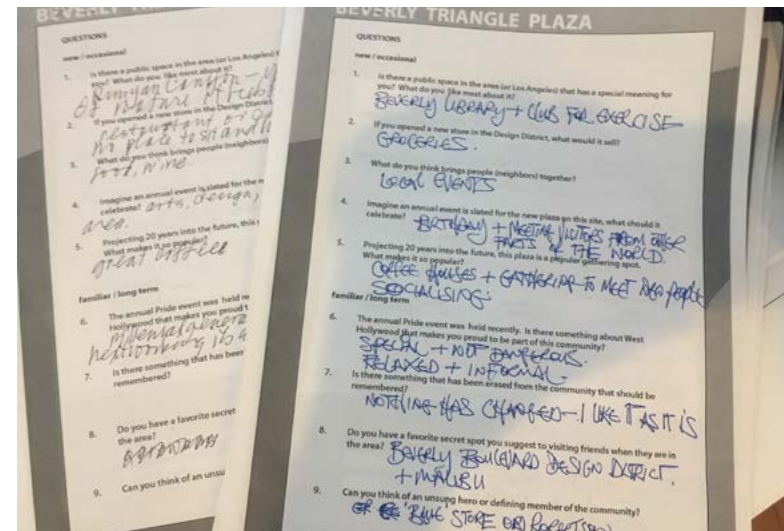 BEVERLY TRIANGLE PLAZA
QUESTIONS
new / occasional
1. Is there a public space in the area (or Los Angeles)
you? What do you like most about it?
Runyan Canyon -
of nature
2. If you opened a new store in the Design District,
restaurant or
no place to sit and
3. What do you think brings people (neighbors)
food, wine.
4. Imagine an annual event is slated for the n
celebrate? arts, design,
area.
5. Projecting 20 years into the future, this
What makes it so popular?
great coffee
familiar / long term
6. The annual Pride event was held re
Hollywood that makes you proud t
7. Is there something that has been
remembered?
8. Do you have a favorite secret
the area?
9. Can you think of an unsu
BEVERLY TRIANGLE PLAZA
QUESTIONS
new / occasional
1. Is there a public space in the area (or Los Angeles) that has a special meaning for
you? What do you like most about it?
BEVERLY LIBRARY + CLUB FOR EXERCISE
2. If you opened a new store in the Design District, what would it sell?
GROCERIES.
3. What do you think brings people (neighbors) together?
LOCAL EVENTS
4. Imagine an annual event is slated for the new plaza on this site, what should it
celebrate? BIRTHDAY + MEETING VISITORS FROM OTHER
PARTS OF THE WORLD.
5. Projecting 20 years into the future, this plaza is a popular gathering spot.
What makes it so popular?
COFFEE HOUSES + GATHERING TO MEET NEW PEOPLE
SOCIALISING.
familiar / long term
6. The annual Pride event was held recently. Is there something about West
Hollywood that makes you proud to be part of this community?
SPECIAL + NOT DANGEROUS.
RELAXED + INFORMAL
7. Is there something that has been erased from the community that should be
remembered?
NOTHING HAS CHANGED - I LIKE IT AS IT IS
8. Do you have a favorite secret spot you suggest to visiting friends when they are in
the area? BEVERLY BOULEVARD DESIGN DISTRICT.
+ MALIBU
9. Can you think of an unsung hero or defining member of the community?
STORE